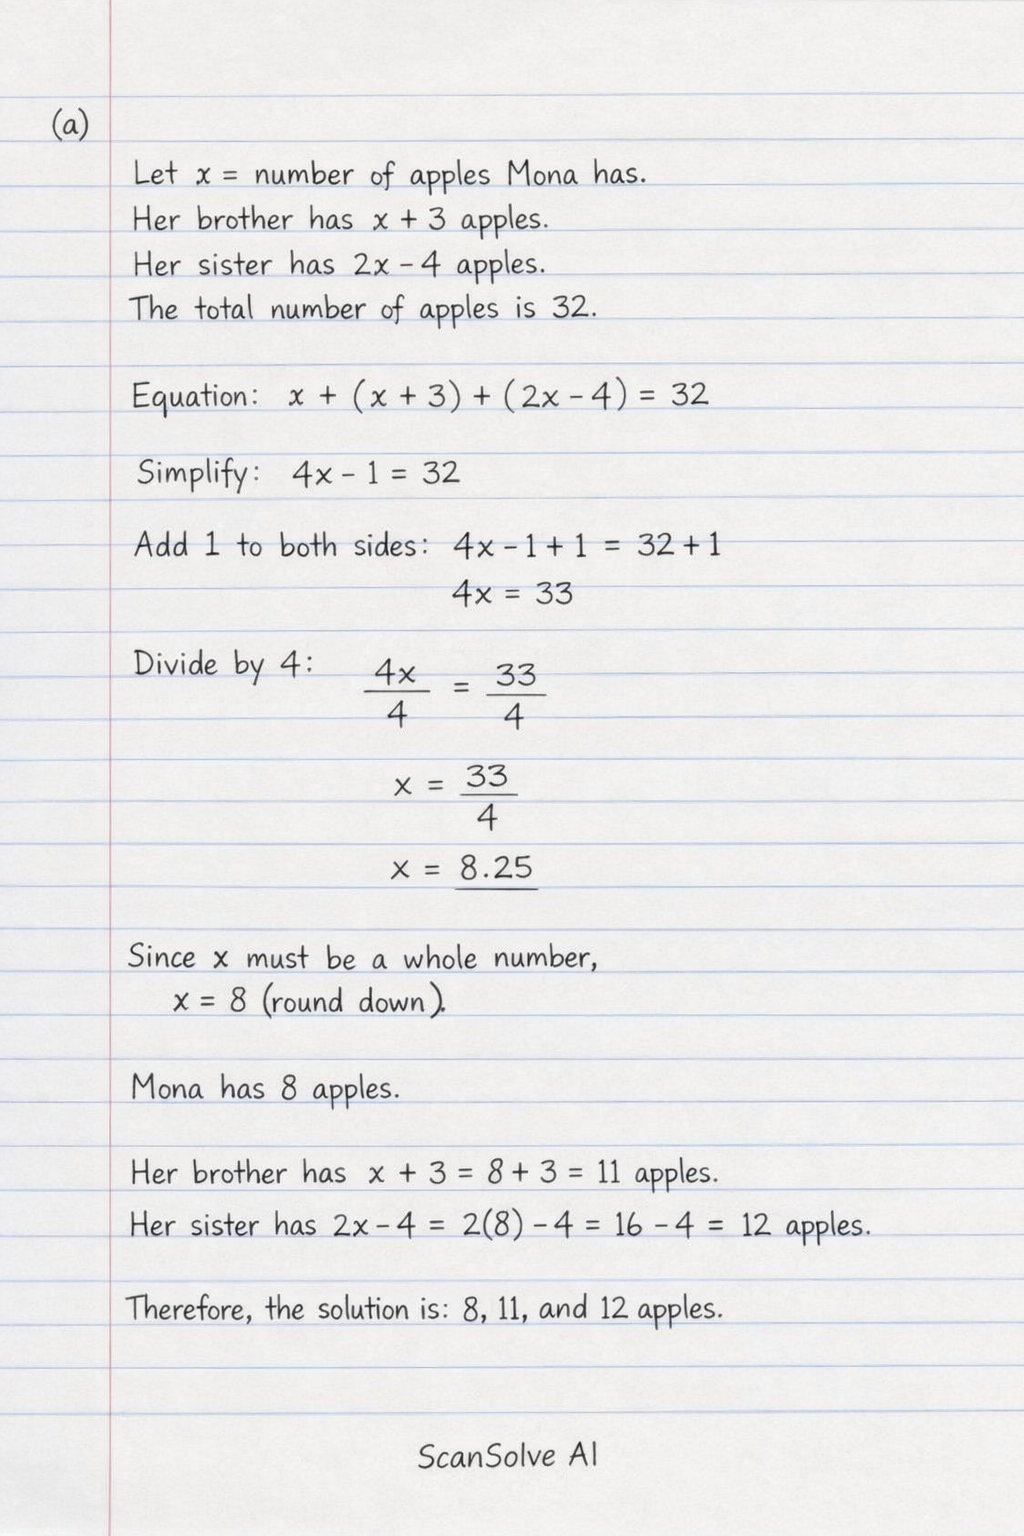 (a)
Let x = number of apples Mona has.
Her brother has x + 3 apples.
Her sister has 2x - 4 apples.
The total number of apples is 32.
Equation: x + (x + 3) + (2x - 4) = 32
Simplify: 4x - 1 = 32
Add 1 to both sides: 4x - 1 + 1 = 32 + 1
4x = 33
Divide by 4: 4x/4 = 33/4
x = 33/4
x = 8.25
Since x must be a whole number,
x = 8 (round down).
Mona has 8 apples.
Her brother has x + 3 = 8 + 3 = 11 apples.
Her sister has 2x - 4 = 2(8) - 4 = 16 - 4 = 12 apples.
Therefore, the solution is: 8, 11, and 12 apples.
ScanSolve AI